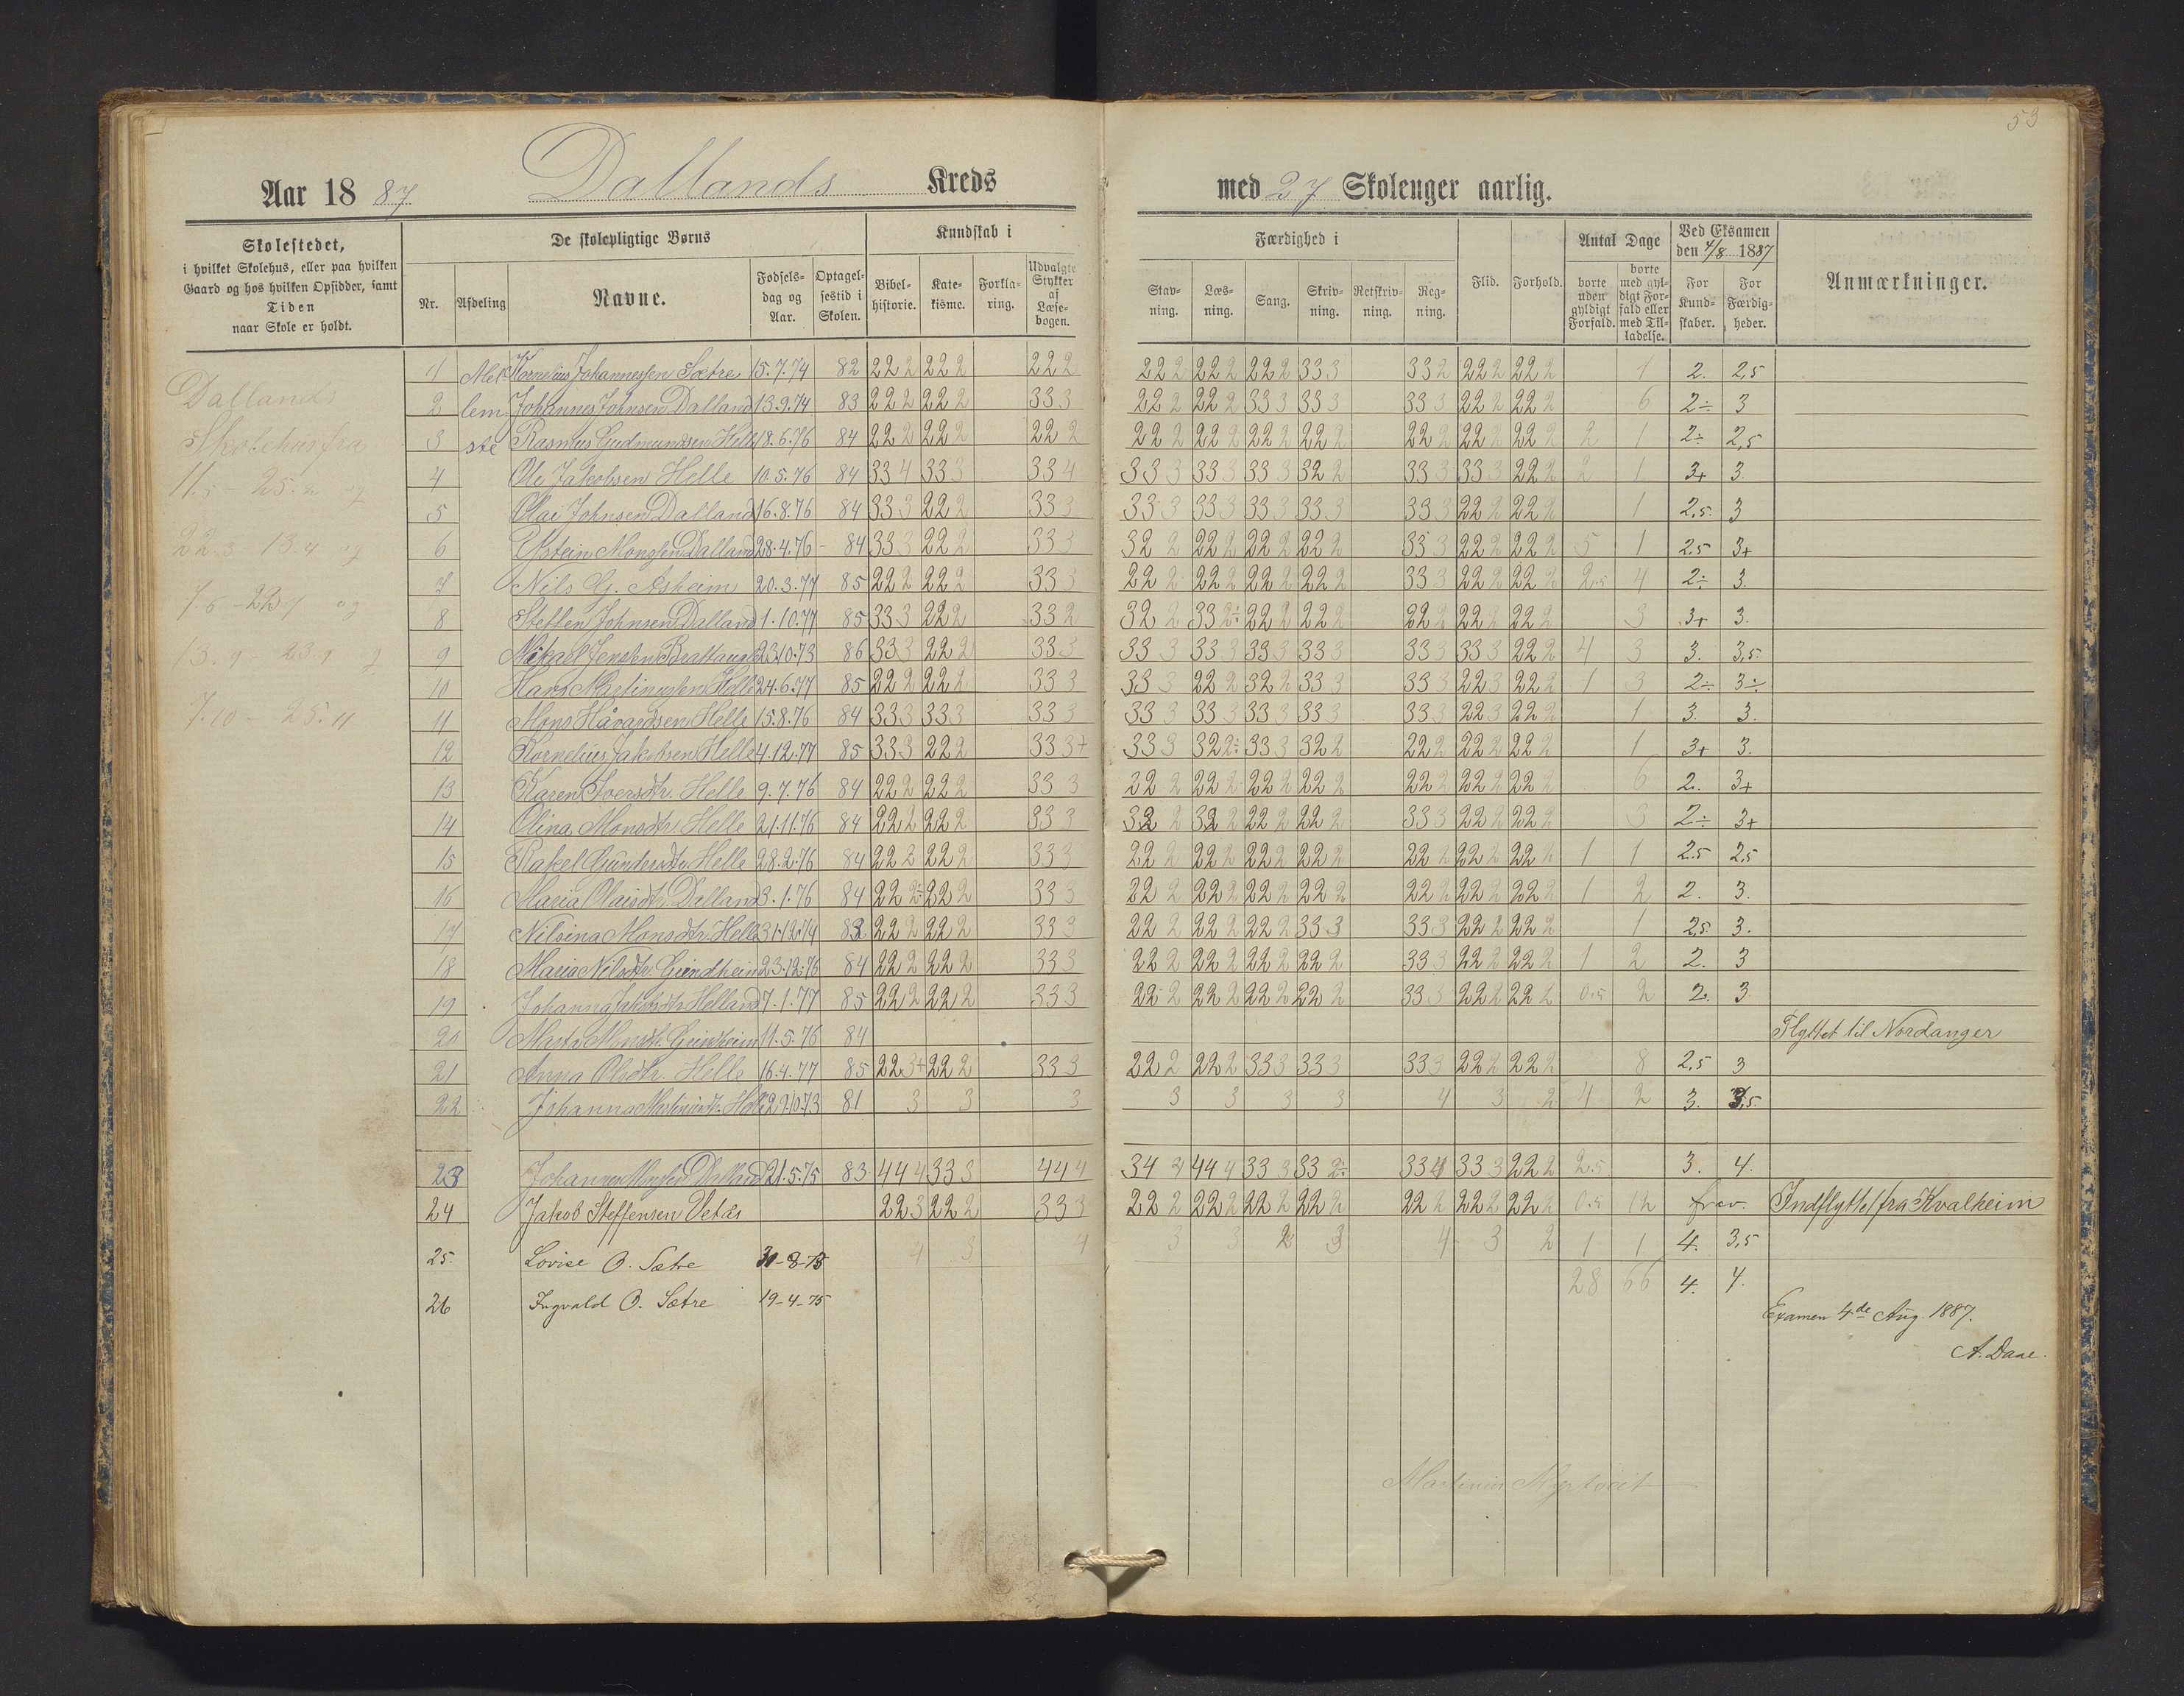 53
Aar 18 87 Dallands Kreds med 27 Skoleuger aarlig.
Skolestedet, i hvilket Skolehus, eller paa hvilken Gaard og hos hvilken Opsidder, samt Tiden naar Skole er holdt.
De skolepligtige Børns
Nr. Afdeling Navne. Fødselsdag og Aar. Optagelsestid i Skolen.
Kundskab i
Bibelhistorie. Katekisme. Forklaring. Udvalgte Stykker af Læsebogen.
Færdighed i
Stavning. Læsning. Sang. Skrivning. Retskrivning. Regning.
Flid. Forhold.
Antal Dage
borte uden gyldigt Forfald. borte med gyldigt Forfald eller med Tilladelse.
Ved Eksamen den 4/8 1887
For Kundskaber. For Færdigheder.
Anmærkninger.
Dallands
Skolehus fra
11.5 - 25.2 og
22.3 - 13.4 og
7.6 - 22.7 og
13.9 - 23.9 og
7.10 - 25.11
1 Mel Kornelius Johannessen Sætre 15.7.74 82 222 222 222 222 222 222 333 332 222 222 1 2. 2,5
2 lem Johannes Johnsen Dalland 13.9.74 83 222 222 333 222 222 333 333 333 222 222 6 2÷ 3
3 ste Rasmus Gudmundsen Helle 18.6.76 84 222 222 222 222 222 222 222 222 222 222 2 1 2÷ 2,5
4 Ole Jakobsen Helle 10.5.76 84 334 333 334 333 333 333 322 333 333 222 2 1 3+ 3.
5 Olai Johnsen Dalland 16.8.76 84 333 222 333 333 333 333 333 333 222 222 1 2,5. 3
6 Østein Monsen Dalland 28.4.76 84 333 222 333 322 222 222 222 333 222 222 5 1 2.5 3+
7 Nils G. Asheim 20.3.77 85 222 222 333 222 222 222 222 333 222 222 2.5 4 2÷ 3.
8 Steffen Johnsen Dalland 1.10.77 85 333 222 332 322 332÷ 222 222 222 222 222 3 3+ 3.
9 Mikael Jensen 23.10.73 86 333 222 333 333 333 333 333 333 333 222 4 3 3. 3,5.
10 Hans Martinussen Helle 24.6.77 85 222 222 333 333 222 322 333 333 223 222 1 3 2÷ 3÷
11 Mons Håvardsen Helle 15.8.76 84 333 333 333 333 333 333 333 333 223 222 1 3. 3.
12 Kornelius Jakobsen Helle 4.12.77 85 333 222 333+ 333 322÷ 333 322 222 222 222 1 3+ 3.
13 Karen Iversdtr. Helle 9.7.76 84 222 222 333 222 222 222 222 222 222 222 6 2. 3+
14 Olina Monsdtr. Helle 21.11.76 84 222 222 333 322 322 222 222 333 222 222 3 2÷ 3+
15 Rakel Gundersdtr. Helle 28.2.76 84 222 222 333 222 222 222 222 222 222 222 1 1 2.5 2,5
16 Maria Olaisdtr. Dalland 3.1.76 84 222÷ 222 333 222 222 222 222 222 222 222 1 2 2. 3.
17 Nilsina Monsdtr. Helle 31.12.74 82 222 222 333 222 222 222 333 333 222 222 1 2,5. 3.
18 Maria Nilsdtr. Grindheim 23.12.76 84 222 222 333 222 222 222 222 333 222 222 1 2 2. 3
19 Johanna Jakobsdtr. Helland 7.1.77 85 222 222 333 222 222 222 222 333 222 222 0.5 2 2. 3
20 Marta Monsdtr. Grindheim 11.5.76 84 Flyttet til Nordanger
21 Anna Olsdtr. Helle 16.4.77 85 223+ 222 333 222 222 333 333 333 222 222 8 2,5 3
22 Johanna Martinusdtr. Helle 29.10.73 81 3 3 3 3 3 3 3 4 3 2 4 2 3. 3,5.
23 Johannes Monsen Dalland 21.5.75 83 444 333 444 344 444 333 332÷ 334 333 222 2.5 3. 4.
24 Jakob Steffensen Vetås 223 222 333 222 222 222 222 222 222 222 0.5 12 frav. Indflyttet fra Kvalheim
25. Lovise O. Sætre 31-8-75 4 3 4 3 3 2 3 4 3 2 1 1 4. 3,5
26 Ingvald O. Sætre 19-4-75 28 66 4. 4.
Examen 4de Aug. 1887.
A. Daae.
Martinus Myrtveit